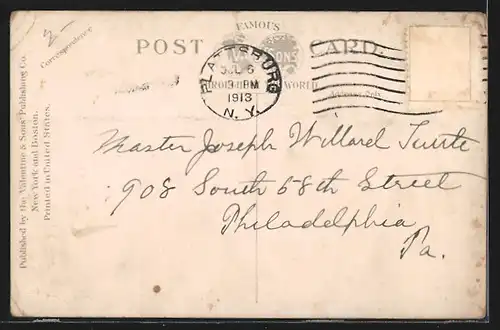 2-
Correspondence
FAMOUS
POST CARD.
THROUGHOUT THE WORLD
PLATTSBURG
JUL 6
1913
N.Y.
Master Joseph Willard
908 South 58th Street
Philadelphia
Pa.
Published by the Valentine & Sons' Publishing Co.
New York and Boston.
Printed in United States.